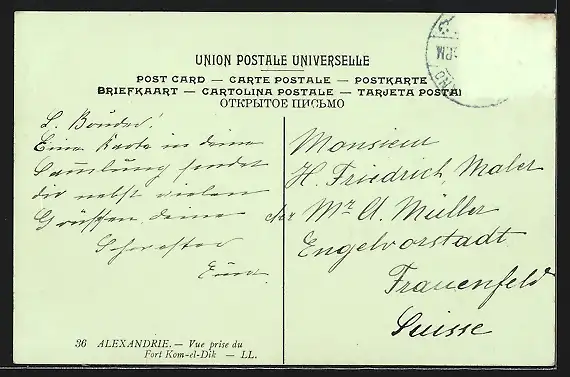 UNION POSTALE UNIVERSELLE
POST CARD — CARTE POSTALE — POSTKARTE
BRIEFKAART — CARTOLINA POSTALE — TARJETA POSTAL
ОТКРЫТОЕ ПИСЬМО
L. Bruder!
Eine Karte in deine
Sammlung sendet
dir nebst vielen
Grüssen deine
Schwester
Monsieur
H. Friedrich, Maler
Mr. A. Müller
Engelvorstadt
Frauenfeld
Suisse
36 ALEXANDRIE. — Vue prise du
Fort Kom-el-Dik — LL.